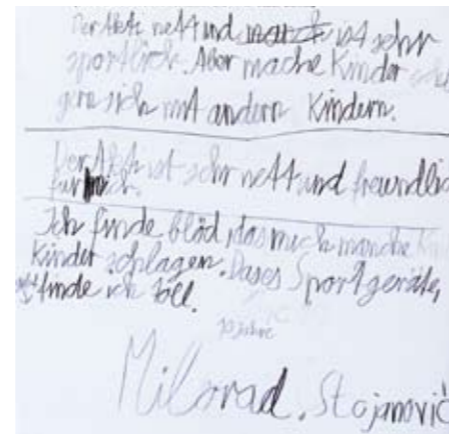 Der Akti nett und ist sehr
sportlich. Aber mache Kinder
gern sich mit andern Kindern.
Der Akti ist sehr nett und freundlic
für mich.
Ich finde blöd das mich manche
Kinder schlagen. Dases Sportgeräte,
finde ich toll.
10 Jahre
Milorad. Stojanović